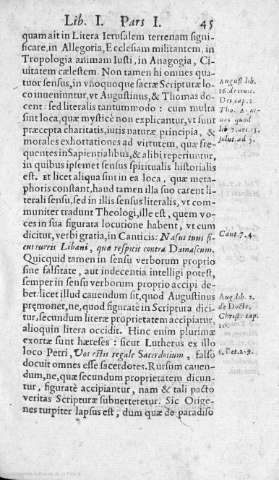 Lib. I. Pars I. 45
quam ait in Litera Ierusalem terrenam signi-
ficare, in Allegoria, Ecclesiam militantem, in
Tropologia animam Iusti, in Anagogia, Ci-
uitatem cælestem. Non tamen hi omnes qua-
tuor sensus, in vnoquoque sacræ Scripturæ lo-
co inueniūtur, vt Augustinus, & Thomas do-
cent: sed literalis tantummodo: cum multa
sint loca, quæ mysticè non explicantur, vt sunt
præcepta charitatis, iuris naturæ principia, &
morales exhortationes ad virtutem, quæ fre-
quentes in Sapientialib⁹, & alibi reperiuntur,
in quibus ipsemet sensus spiritualis historialis
est. et licet aliqua sint in ea loca, quæ meta-
phoris constant, haud tamen illa suo carent li-
terali sensu, sed in illis sensus literalis, vt com-
muniter tradunt Theologi, ille est, quem vo-
ces in sua figurata locutione habent, vt cum
dicitur, verbi gratia, in Canticis: Nasus tuus si-
cut turris Libani, quæ respicit contra Damascum.
Quicquid tamen in sensu verborum proprio
sine falsitate, aut indecentia intelligi potest,
semper in sensu verborum proprio accipi de-
ber. licet illud cauendum sit, quod Augustinus
præmonet, ne, quod figuratè in Scriptura dici-
tur, secundum literæ proprietatem accipiatur.
alioquin litera occidit. Hinc enim plurimæ
exortæ sunt hæreses: sicut Lutherus ex illo
loco Petri, Vos estis regale Sacerdotium, falso
docuit omnes esse sacerdotes. Rursum cauen-
dum, ne, quæ secundum proprietatem dicun-
tur, figuratè accipiantur, nam & tali pacto
veritas Scripturæ subuerteretur. Sic Orige-
nes turpiter lapsus est, dum quæ de paradiso
August. lib.
Cant. 7. 4.
Aug. lib. 3.
de Doctr.
Christ. cap.
1. Pet. 2. 9.